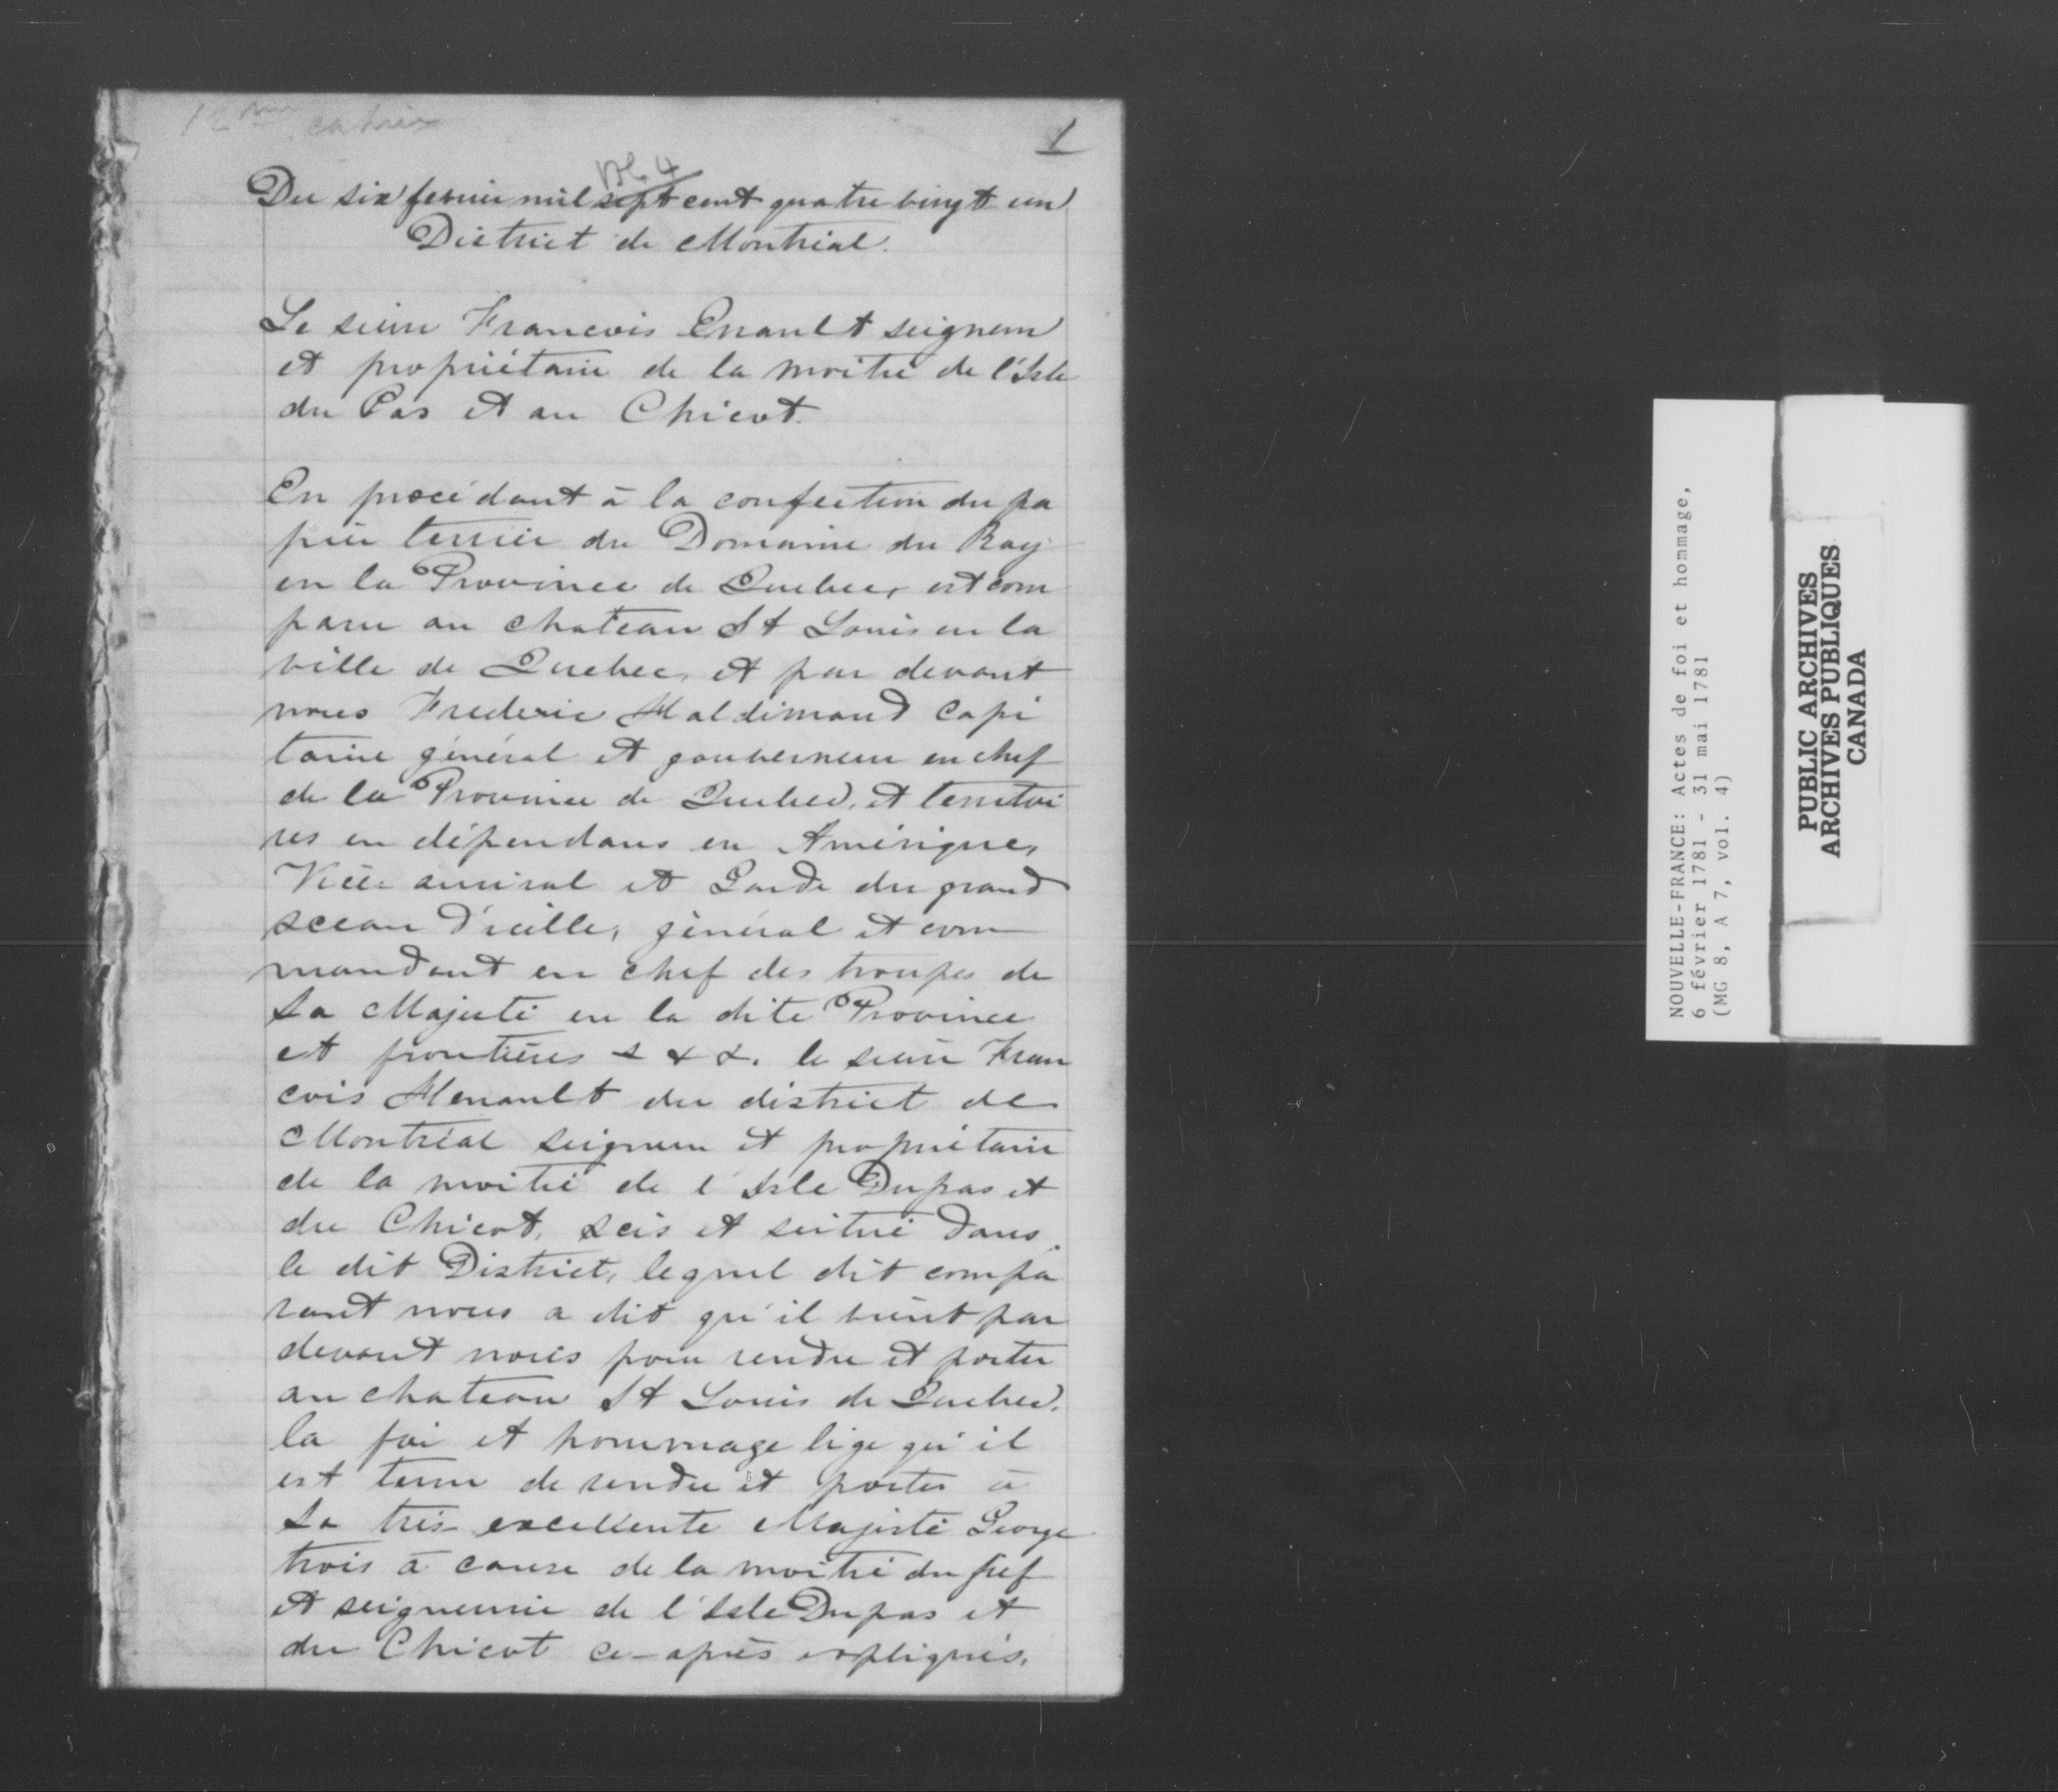 12me cahier
1
Vol. 4
Du six fevrier mil sept cent quatre vingt un
District de Montréal.
Le sieur Francois Enault seigneur
et propriétaire de la moitié de l'Isle
du Pas et au Chicot.
En procédant à la confection du pa
pier terrier du Domaine du Roy
en la Province de Quebec, est com
paru au chateau St Louis en la
ville de Quebec, et par devant
nous Frederic Haldimand Capi
taine général et gouverneur en chef
de la Province de Quebec, et territoi
res en dépendans en Amérique,
Vice amiral et Garde du grand
sceau d'icelle, général et com
mandant en chef des troupes de
Sa Majesté en la dite Province
et frontières & & &. le sieur Fran
cois Henault du district de
Montréal seigneur et propriétaire
de la moitié de l'Isle Dupas et
du Chicot, scis et scitué dans
le dit District, lequel dit compa
rant nous a dit qu'il vient par
devant nous pour rendre et porter
au chateau St Louis de Quebec.
la foi et hommage lige qu'il
est tenu de rendre et porter à
Sa très excellente Majesté George
trois à cause de la moitié du fief
et seigneurie de l'Isle Dupas et
du Chicot ci-après expliqués.
NOUVELLE-FRANCE: Actes de foi et hommage,
6 février 1781 - 31 mai 1781
(MG 8, A 7, vol. 4)
PUBLIC ARCHIVES
ARCHIVES PUBLIQUES
CANADA